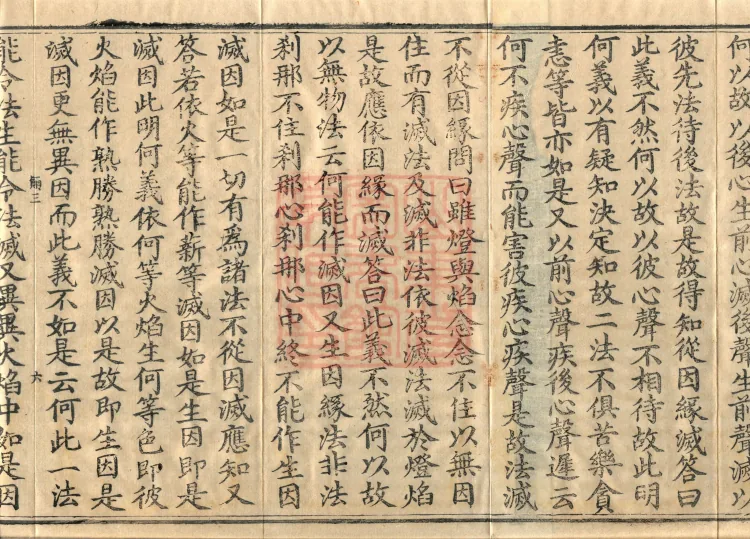 何以故以後心生前心滅後聲生前聲滅以
彼先法待後法故是故得知從因緣滅答曰
此義不然何以故以彼心聲不相待故此明
何義以有疑知決定知故二法不俱苦樂貪
恚等皆亦如是又以前心聲疾後心聲遲云
何不疾心聲而能害彼疾心疾聲是故法滅
不從因緣問曰雖燈與焰念念不住以無因
住而有滅法及滅非法依彼滅法滅於燈焰
是故應依因緣而滅答曰此義不然何以故
以無物法云何能作滅因又生因緣法非法
刹那不住刹那心刹那心中終不能作生因
滅因如是一切有爲諸法不從因滅應知又
答若依火等能作薪等滅因如是生因即是
滅因此明何義依何等火焰生何等色即彼
火焰能作熟勝熟勝滅因以是故即生因是
滅因更無異因而此義不如是云何此一法
三 六
能令法生能令法滅又異異火焰中如是因